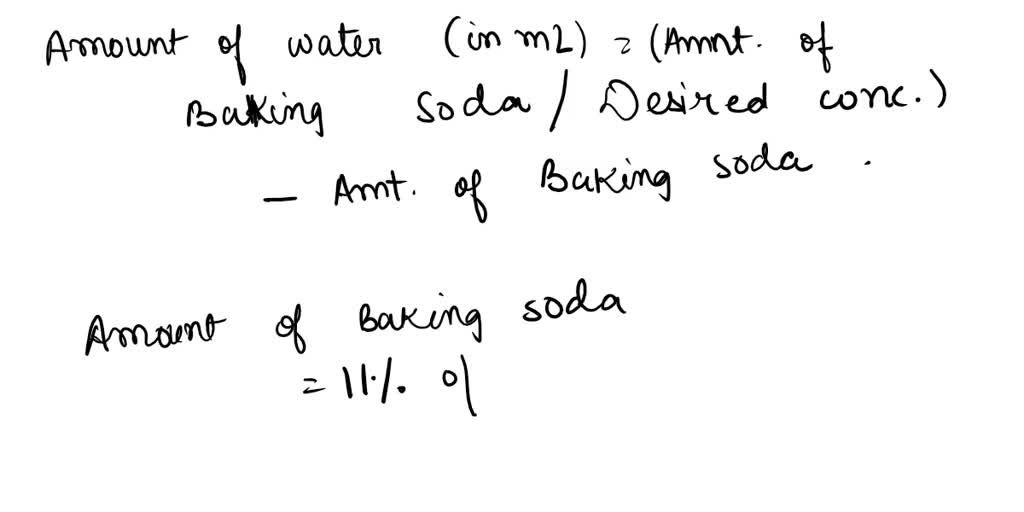 Amount of water (in mL) = (Amnt. of
Baking Soda / Desired conc.)
- Amt. of Baking soda .
Amount of Baking soda
= 11% of